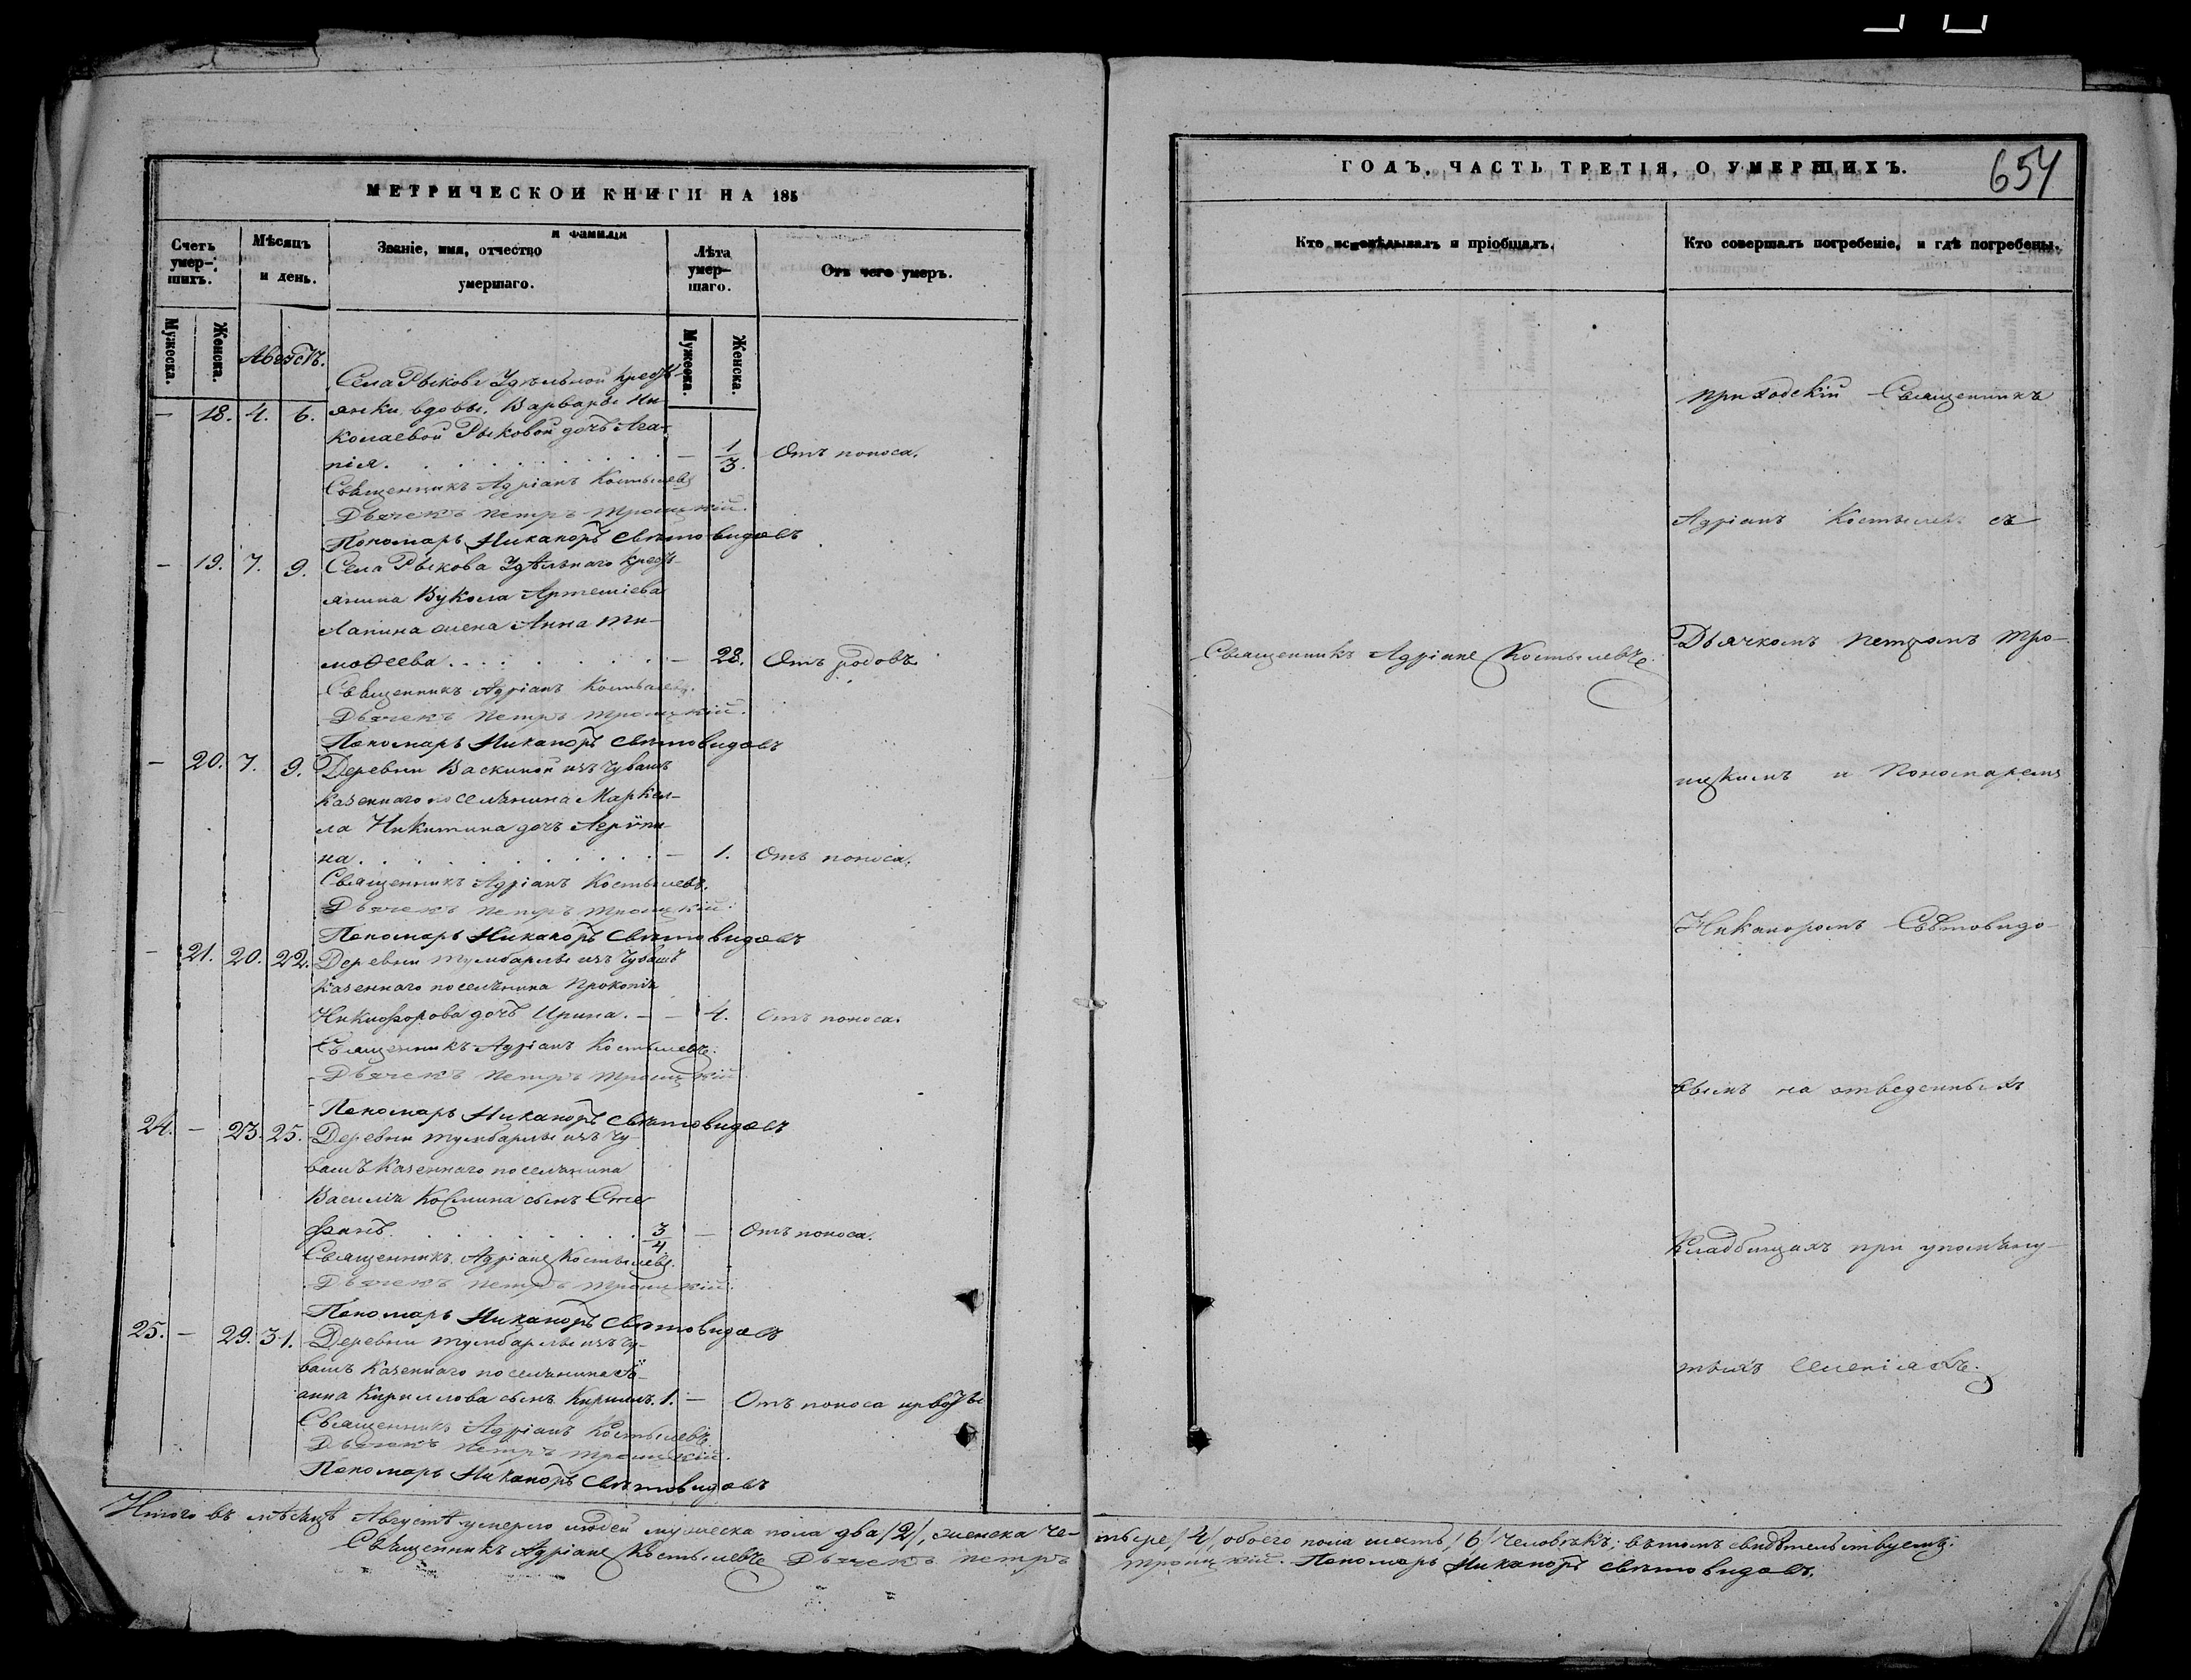 МЕТРИЧЕСКОЙ КНИГИ НА 185
Счетъ умер-шихъ.
Мѣсяцъ и день.
Званіе, имя, отчество и фамилія умершаго.
Лѣта умер-шаго.
Отъ чего умеръ.
Мужеска. Женска.
Мужеска. Женска.
Августъ.
Села Рыкова Удѣльной крестъ-
— 18. 4. 6. янки вдовы, Варвары Ни-
колаевой Рыковой дочь Ага-
пія. — 1/3. Отъ поноса.
Священникъ Адріанъ Костылевъ
Дьячекъ Петръ Троицкій.
Пономарь Никаноръ Свѣтовидовъ
— 19. 7. 9. Села Рыкова Удѣльнаго крестъ-
янина Вукола Артеміева
Лапина жена Анна Ти-
моѳеева. — 28. Отъ родовъ.
Священникъ Адріанъ Костылевъ.
Дьячекъ Петръ Троицкій.
Пономарь Никаноръ Свѣтовидовъ
— 20. 7. 9. Деревни Васкиной изъ Чувашъ
казеннаго поселянина Маркел-
ла Никитина дочь Агрипи-
на. — 1. Отъ поноса.
Священникъ Адріанъ Костылевъ.
Дьячекъ Петръ Троицкій.
Пономарь Никаноръ Свѣтовидовъ
— 21. 20. 22. Деревни Тумбарлы изъ Чувашъ
казеннаго поселянина Прокопія
Никифорова дочь Ирина. — — 4. Отъ поноса.
Священникъ Адріанъ Костылевъ.
Дьячекъ Петръ Троицкій
Пономарь Никаноръ Свѣтовидовъ
24. — 23. 25. Деревни Тумбарлы изъ Чу-
вашъ казеннаго поселянина
Василія Космина сынъ Сте-
фанъ. 3/4. — Отъ поноса.
Священникъ Адріанъ Костылевъ.
Дьячекъ Петръ Троицкій.
Пономарь Никаноръ Свѣтовидовъ
25. — 29. 31. Деревни Тумбарлы изъ Чу-
вашъ казеннаго поселянина Іо-
анна Кириллова сынъ Кириллъ. 1. — Отъ поноса
Священникъ Адріанъ Костылевъ
Дьячекъ Петръ Троицкій.
Пономарь Никаноръ Свѣтовидовъ
ГОДЪ, ЧАСТЬ ТРЕТІЯ, О УМЕРШИХЪ.
654
Кто исповѣдывалъ и пріобщалъ.
Кто совершалъ погребеніе, и гдѣ погребены.
Священникъ Адріанъ Костылевъ.
Приходскій Священникъ
Адріанъ Костылевъ съ
Дьячкомъ Петромъ Тро-
ицкимъ и Пономаремъ
Никаноромъ Свѣтовидо-
вымъ на отведенныхъ
кладбищахъ при упомяну-
тыхъ селеніяхъ.
Итого въ мѣсяцѣ Августѣ умерло людей мужеска пола два /2/, женска че- тыре /4/, обоего пола шесть /6/ человѣкъ; въ томъ свидѣтельствуемъ:
Священникъ Адріанъ Костылевъ Дьячекъ Петръ Троицкій. Пономарь Никаноръ Свѣтовидовъ.